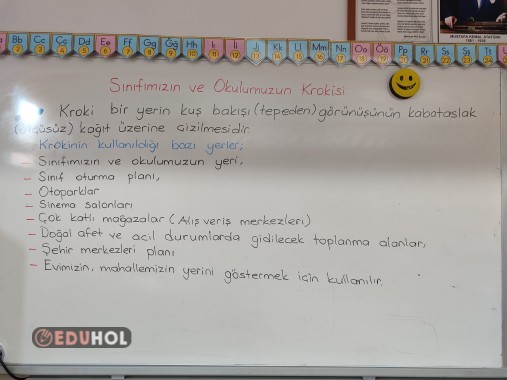 Bb Cc Çç Dd Ee Ff Gg Ğğ Hh Iı İi Jj Kk Ll Mm Nn Oo Öö Pp Rr Ss Şş Tt U
MUSTAFA KEMAL ATATÜRK
1881 - 1938
Sınıfımızın ve Okulumuzun Krokisi
Kroki bir yerin kuş bakışı (tepeden) görünüşünün kabataslak
(ölçüsüz) kağıt üzerine çizilmesidir.
Krokinin kullanıldığı bazı yerler;
- Sınıfımızın ve okulumuzun yeri,
- Sınıf oturma planı,
- Otoparklar
- Sinema salonları
- Çok katlı mağazalar (Alış veriş merkezleri)
- Doğal afet ve acil durumlarda gidilecek toplanma alanları,
- Şehir merkezleri planı
- Evimizin, mahallemizin yerini göstermek için kullanılır.
EDUHOL